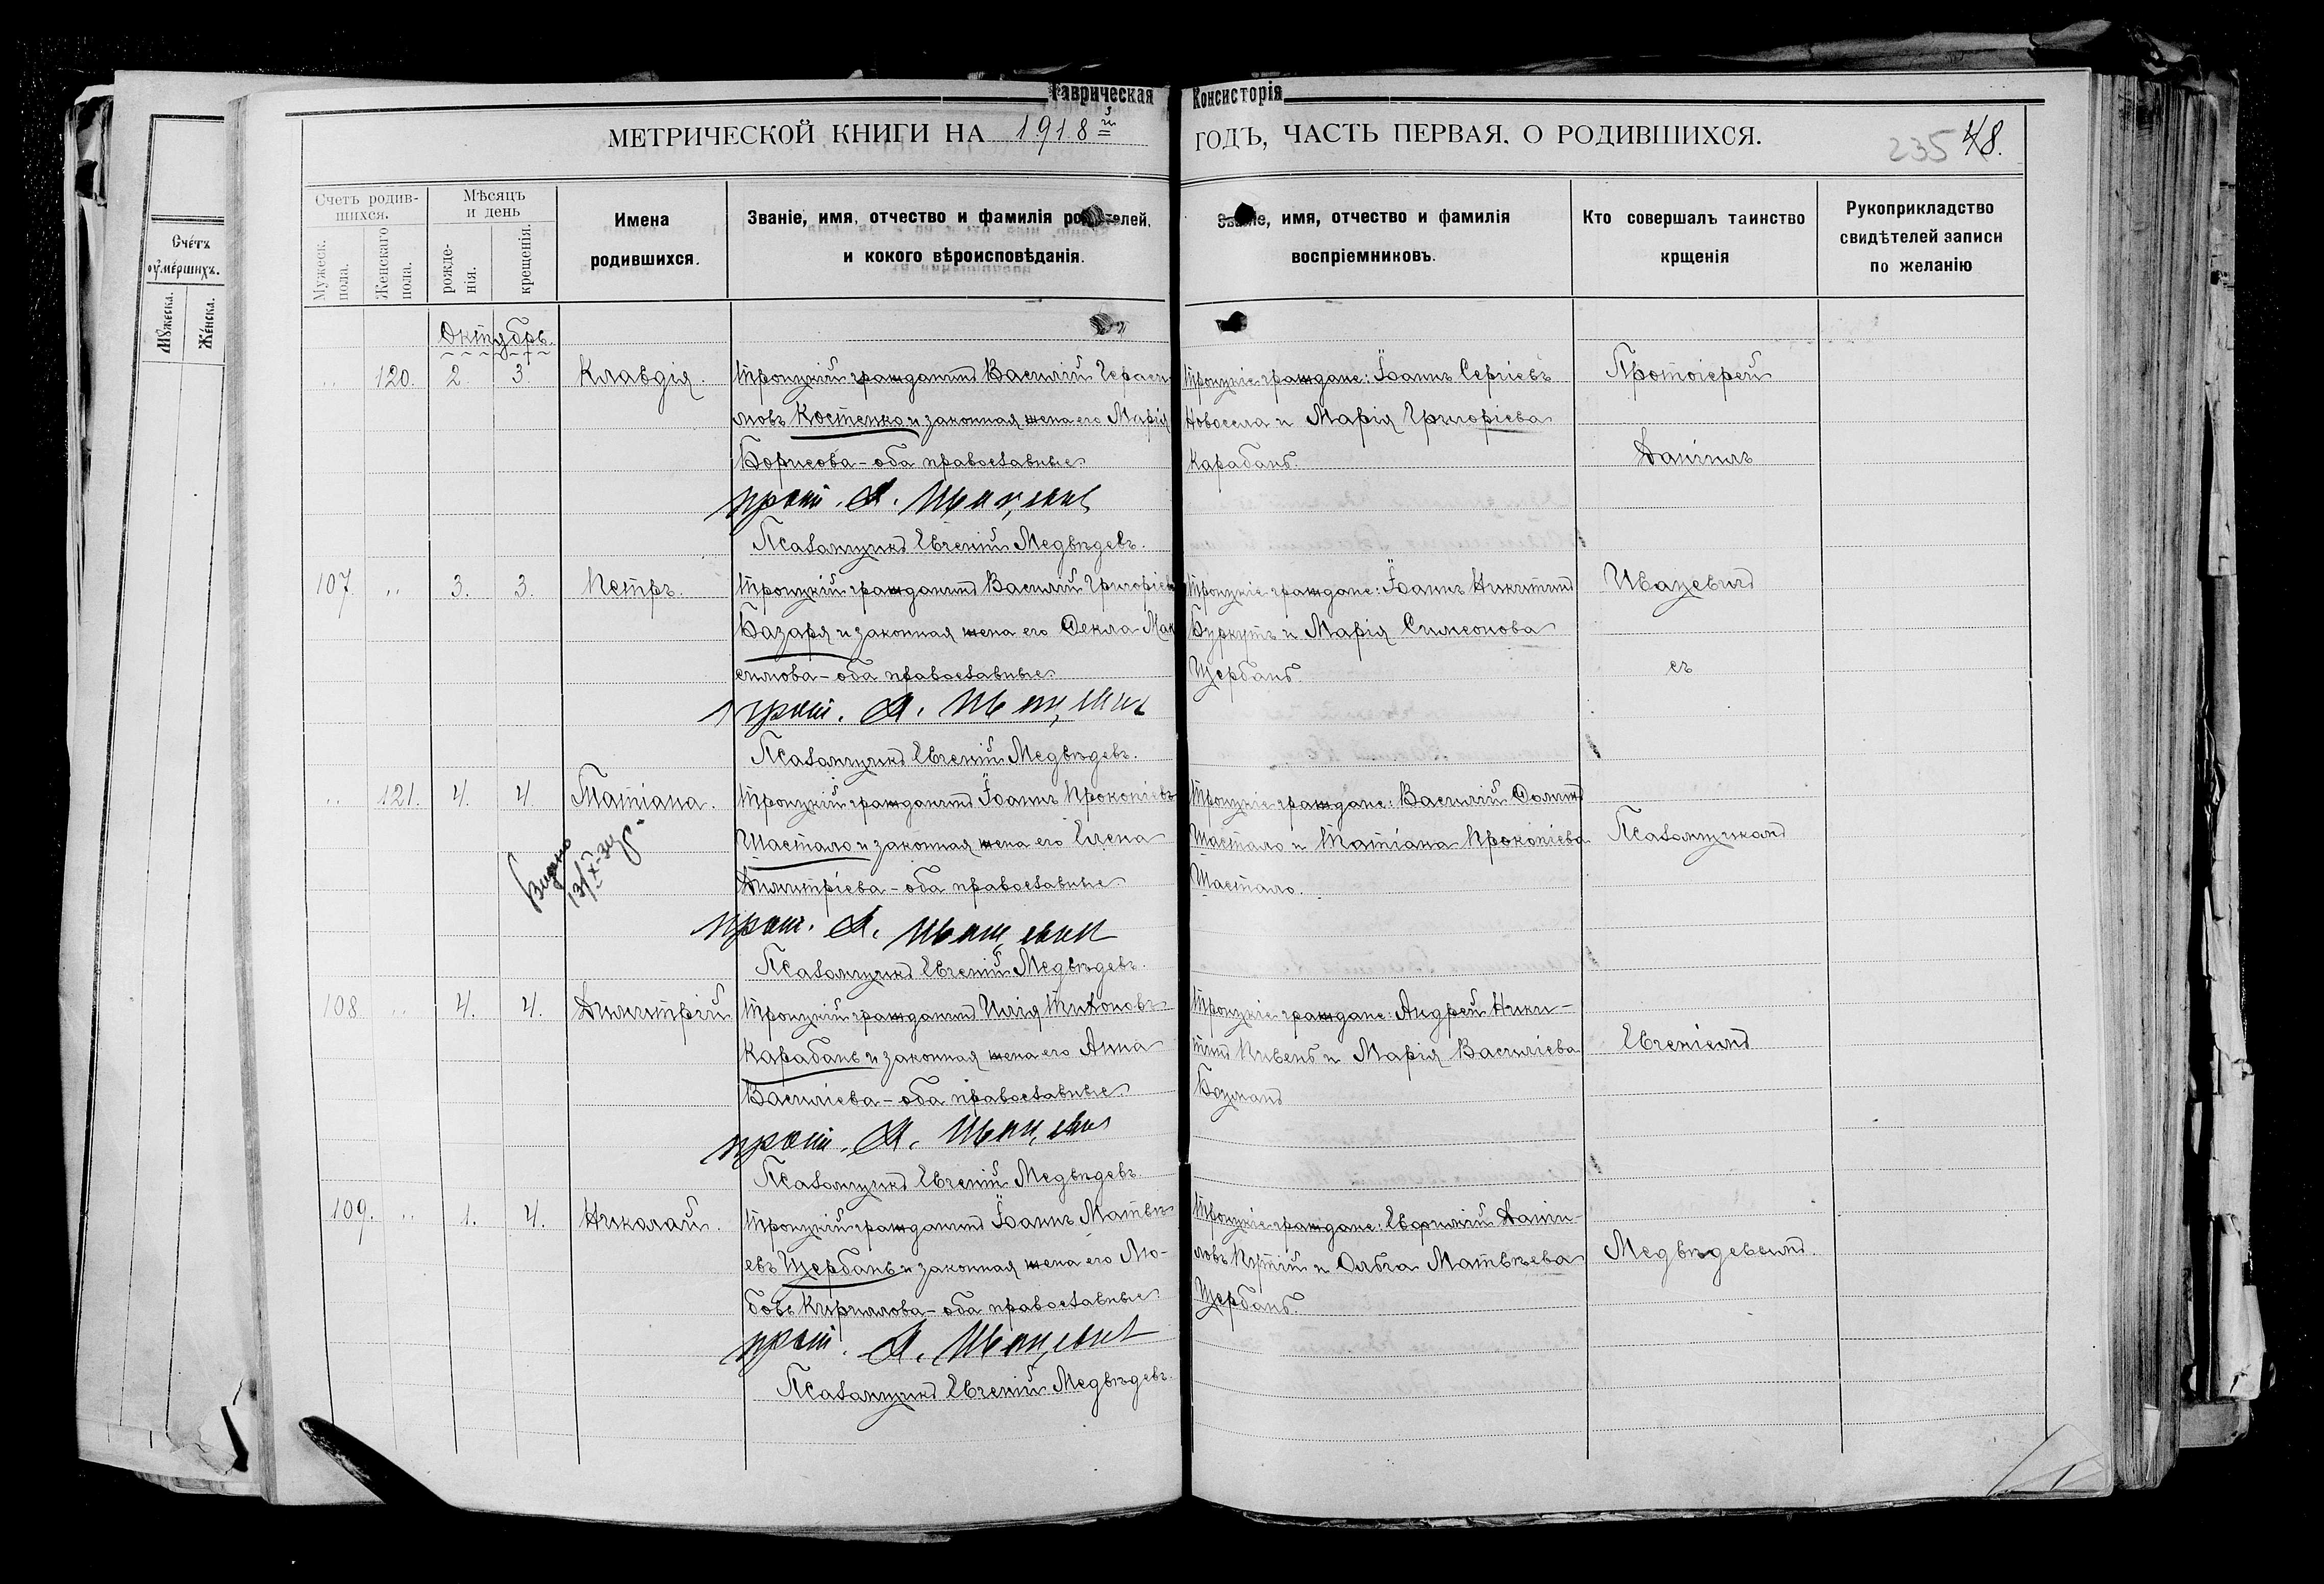 Таврическая Консисторія
МЕТРИЧЕСКОЙ КНИГИ НА 1918й ГОДЪ, ЧАСТЬ ПЕРВАЯ. О РОДИВШИХСЯ.
235 48.
Счетъ родив-
шихся.
Мужеск.
пола.
Женскаго
пола.
Мѣсяцъ
и день
рожде-
нія.
крещенія.
Имена
родившихся.
Званіе, имя, отчество и фамилія родителей,
и кокого вѣроисповѣданія.
Званіе, имя, отчество и фамилія
воспріемниковъ.
Кто совершалъ таинство
крщенія
Рукоприкладство
свидѣтелей записи
по желанію
Счéтъ
оумéршихъ.
Мужеска.
Жéнска.
Октябрь.
120. 2. 3. Клавдія.
Троицкій гражданинъ Василій Гераси
мовъ Костенко и законная жена его Марія
Борисова - оба православные
прот. Д. Ивацевич
Псаломщикъ Евгеній Медвѣдевъ.
Троицкіе граждане: Іоаннъ Сергіевъ
Новосела и Марія Григоріева
Карабанъ.
107. 3. 3. Петръ.
Троицкій гражданинъ Василій Григоріев
Базаря и законная жена его Фекла Мак
симова - оба православные
прот. Д. Ивацевич
Псаломщикъ Евгеній Медвѣдевъ.
Троицкіе граждане: Іоаннъ Никитинъ
Буркутъ и Марія Симеонова
Щербань
121. 4. 4. Татіана.
Видано
13/X-34г.
Троицкій гражданинъ Іоаннъ Прокопіевъ
Шастало и законная жена его Елена
Димитріева - оба православные
прот. Д. Ивацевич
Псаломщикъ Евгеній Медвѣдевъ.
Троицкіе граждане: Василій Фоминъ
Шастало и Татіана Прокопіева
Шастало.
108. 4. 4. Димитрій
Троицкій гражданинъ Илія Тихоновъ
Карабань и законная жена его Анна
Василіева - оба православные
прот. Д. Ивацевич
Псаломщикъ Евгеній Медвѣдевъ
Троицкіе граждане: Андрей Ники-
тинъ Пивень и Марія Василіева
109. 1. 4. Николай.
Троицкій гражданинъ Іоаннъ Матвѣ
евъ Щербань и законная жена его Лю-
бовь Кириллова - оба православные
прот. Д. Ивацевич
Псаломщикъ Евгеній Медвѣдевъ.
Троицкіе граждане: Евфимій Дани-
ловъ Кутній и Ольга Матвѣева
Щербань.
Протоіерей
Даніилъ
Ивацевичъ
съ
Псаломщикомъ
Евгеніемъ
Медвѣдевымъ.